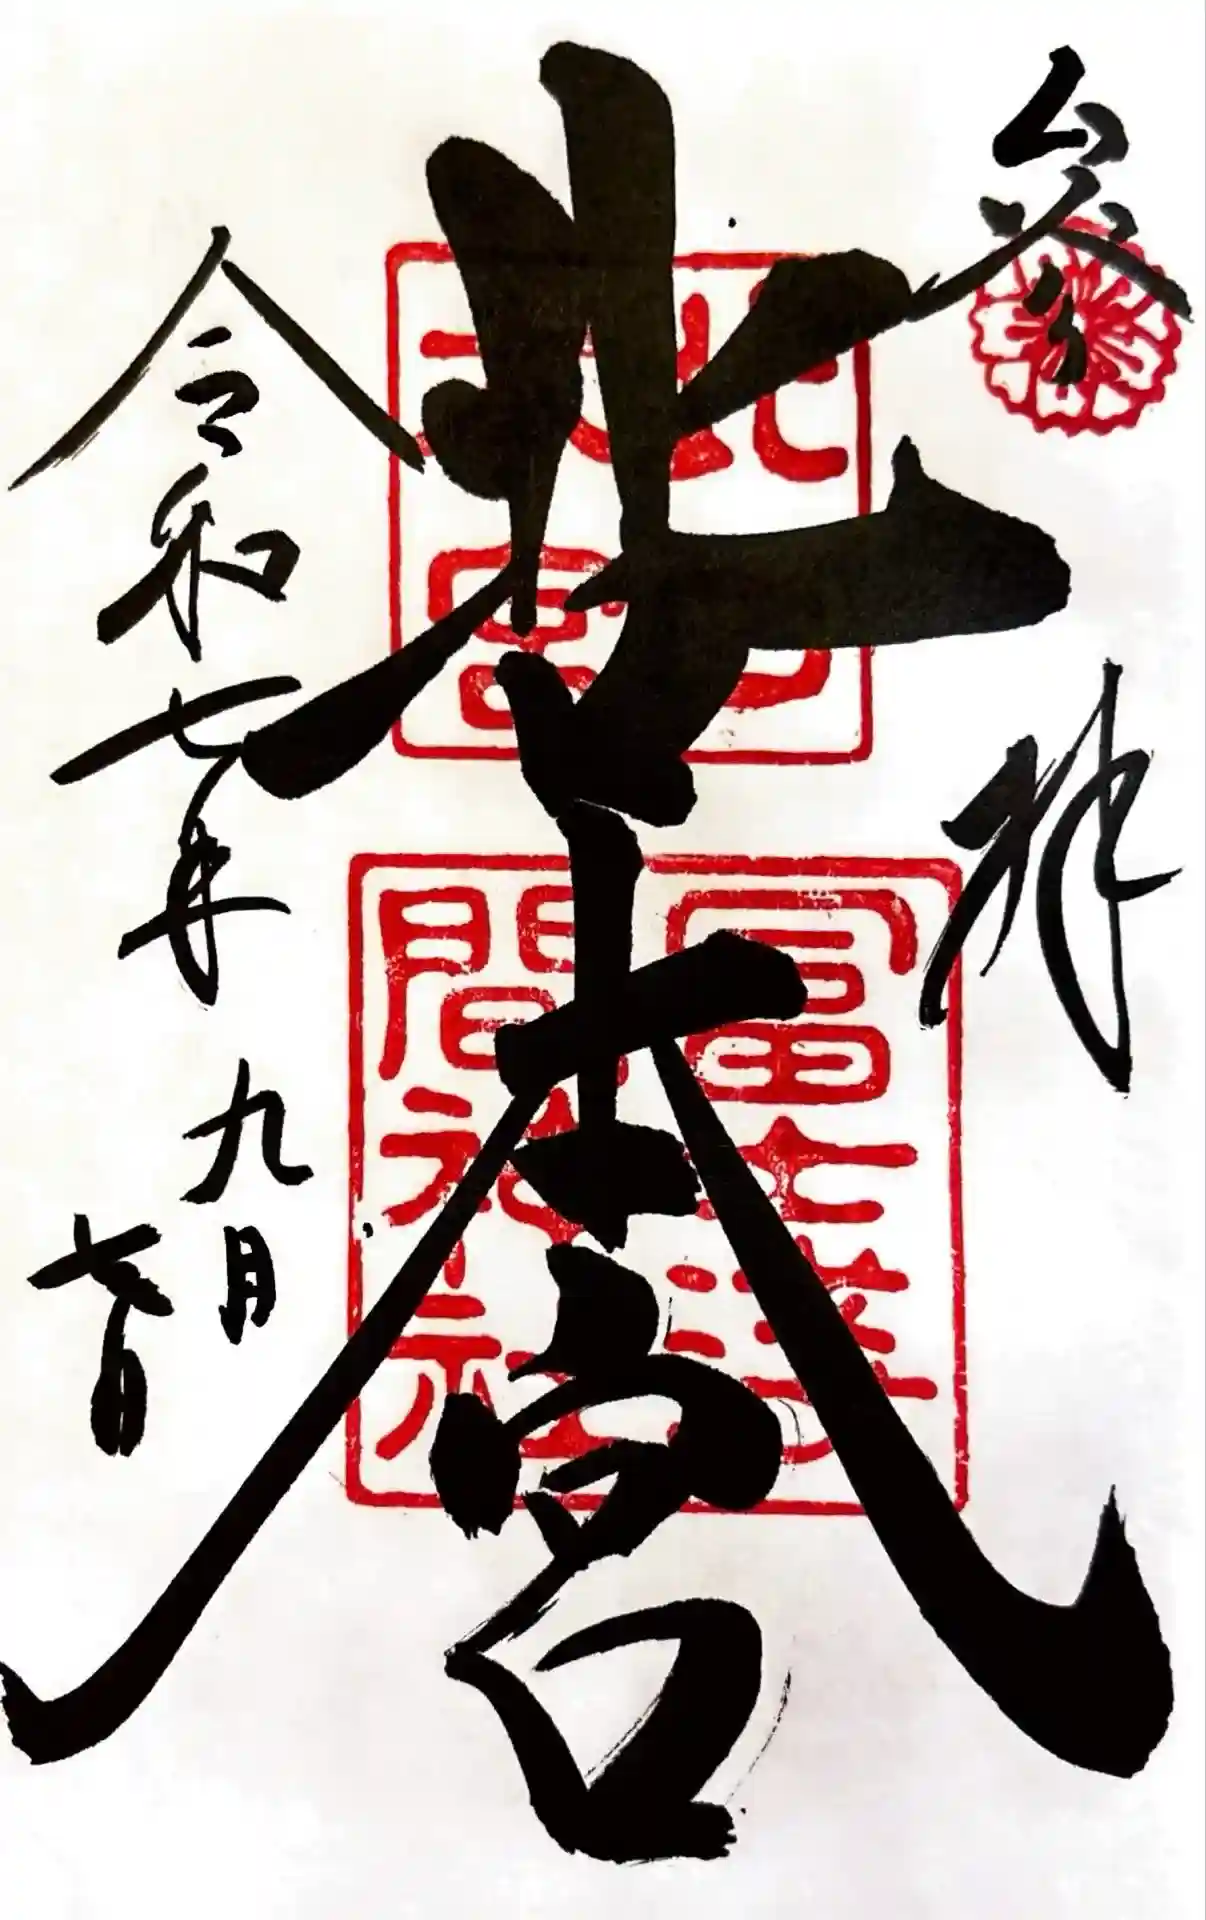 参拝
北口本宮
北口
本宮
冨士淺
間神社
令和七年九月七日